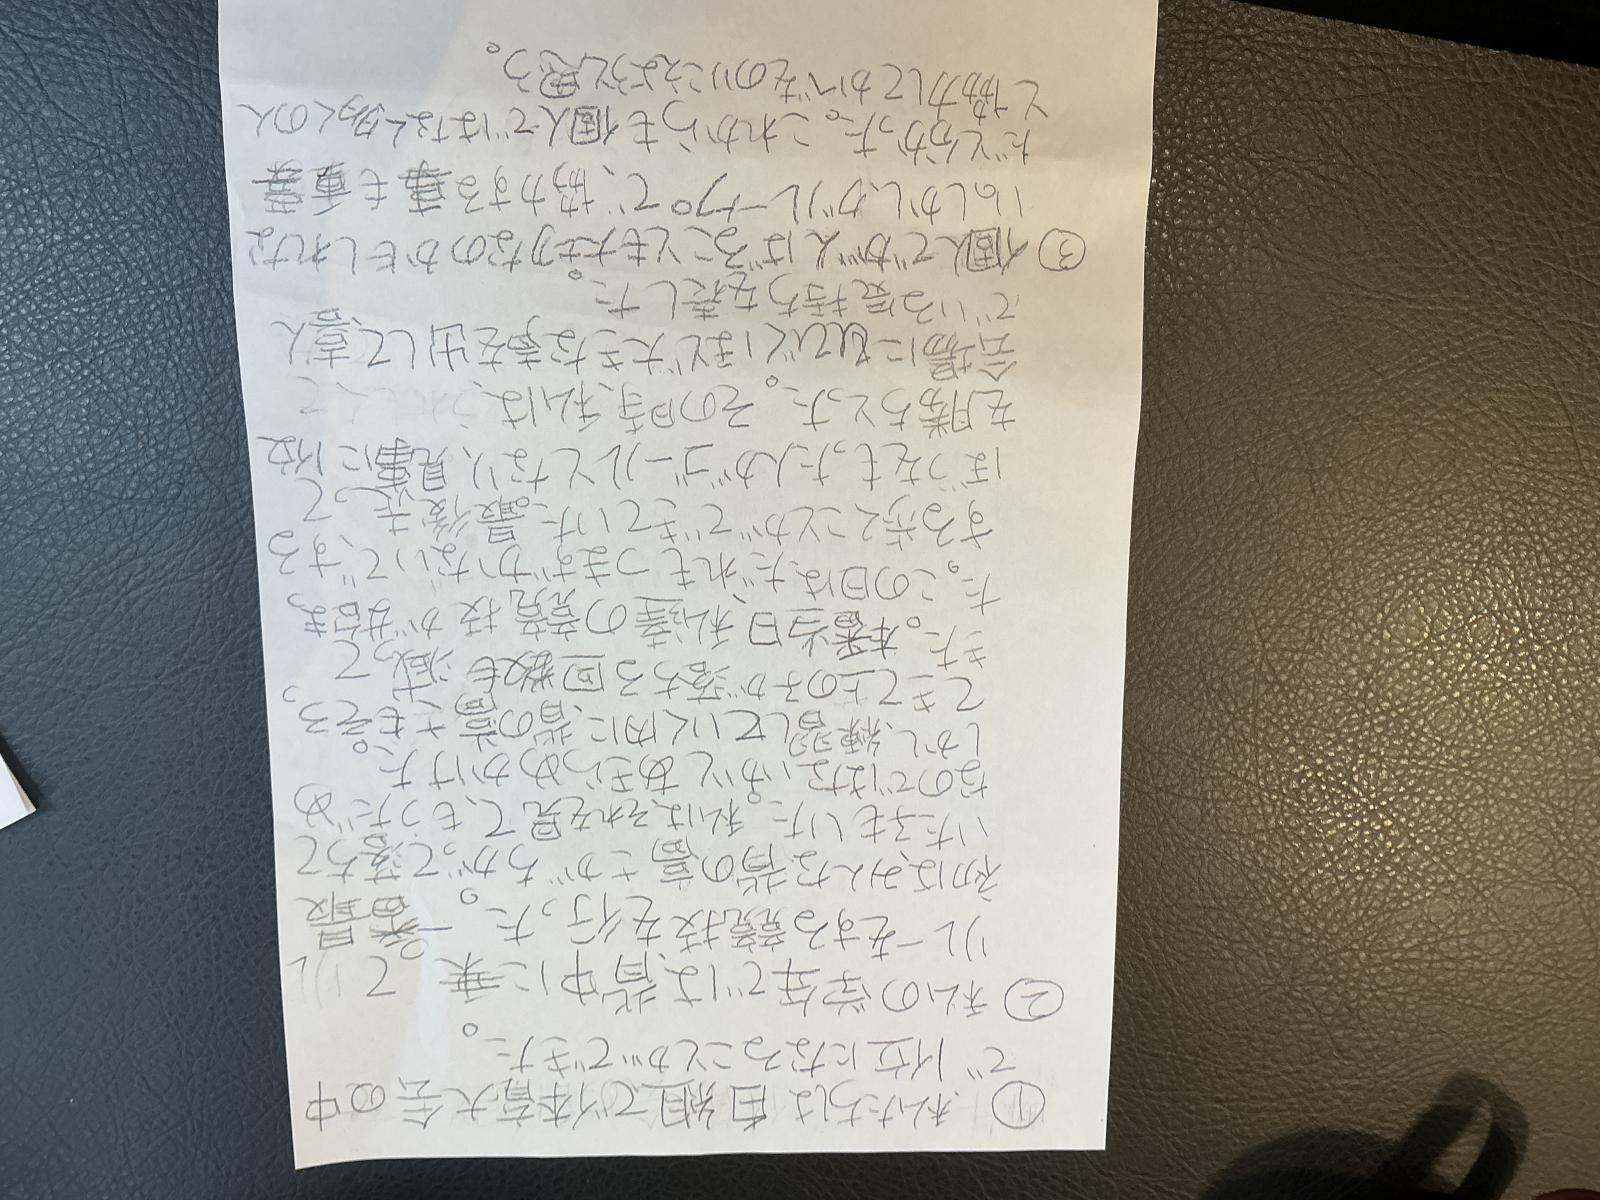 ①私たちは白組で体育大会の中
で1位になることができた。
②私の学年では、背中に乗ってリレ
リレーをする競技を行った。一番最
初はみんな背の高さがちがって落ちて
いた子もいた。私はそれを見て、もうだめ
なのではないかとあきらめかけた。
しかし、練習していく内に、背の高さもそろっ
てきて上の子が落ちる回数も減って
きた。本番当日、私達の競技が始まっ
た。この日は、だれもつまずかないで、する
する歩くことができていた。最後、走って
ぼうをもった人がゴールとなり、見事に1位
を勝ちとった。その時、私は、うれしくて、
会場にひびくほど大きな声を出して、喜ん
でいる気持ちを表した。
③個人でがんばることも大切なのかもしれな
い。しかし、グループで、協力する事も重要
だと分かった。これからも個人ではなく多くの人
と協力してかべをのりこえようと思う。